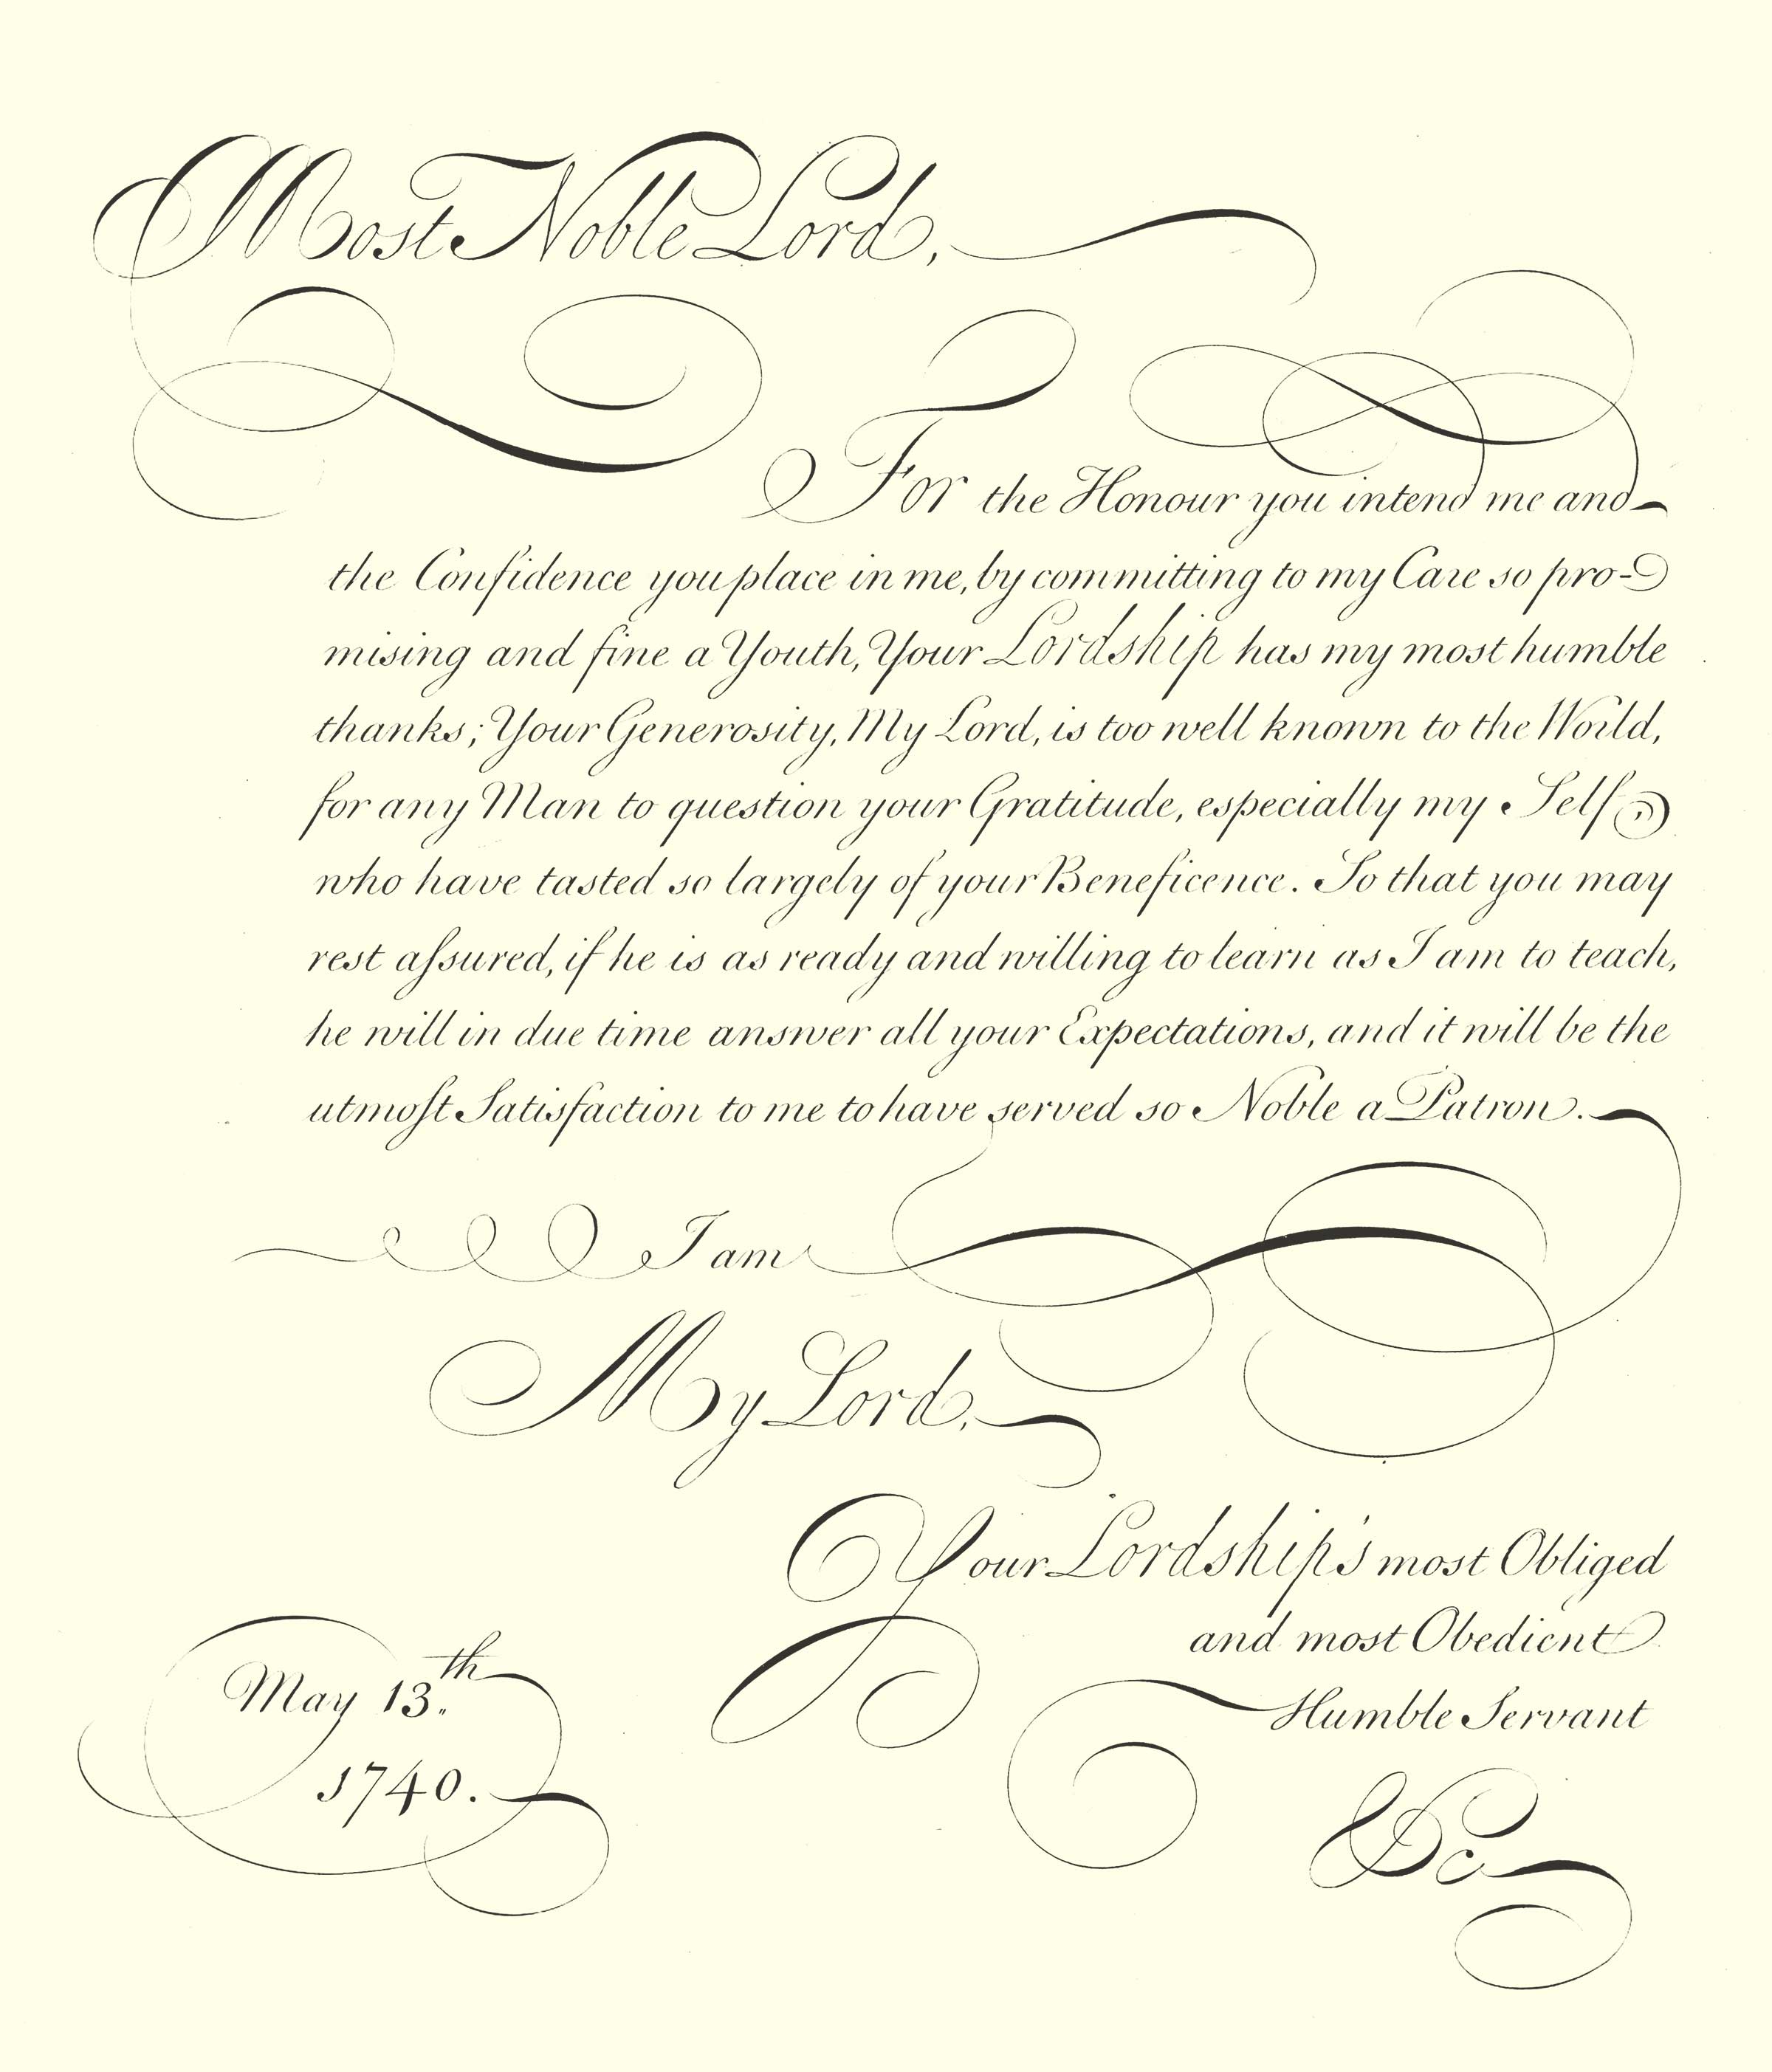 Most Noble Lord,
For the Honour you intend me and
the Confidence you place in me, by committing to my Care so pro-
mising and fine a Youth, Your Lordship has my most humble
thanks; Your Generosity, My Lord, is too well known to the World,
for any Man to question your Gratitude, especially my Self
who have tasted so largely of your Beneficence. So that you may
rest aſsured, if he is as ready and willing to learn as I am to teach,
he will in due time answer all your Expectations, and it will be the
utmoſt Satisfaction to me to have served so Noble a Patron.
I am
My Lord,
Your Lordship's most Obliged
and most Obedient
Humble Servant
&c
May 13.th
1740.